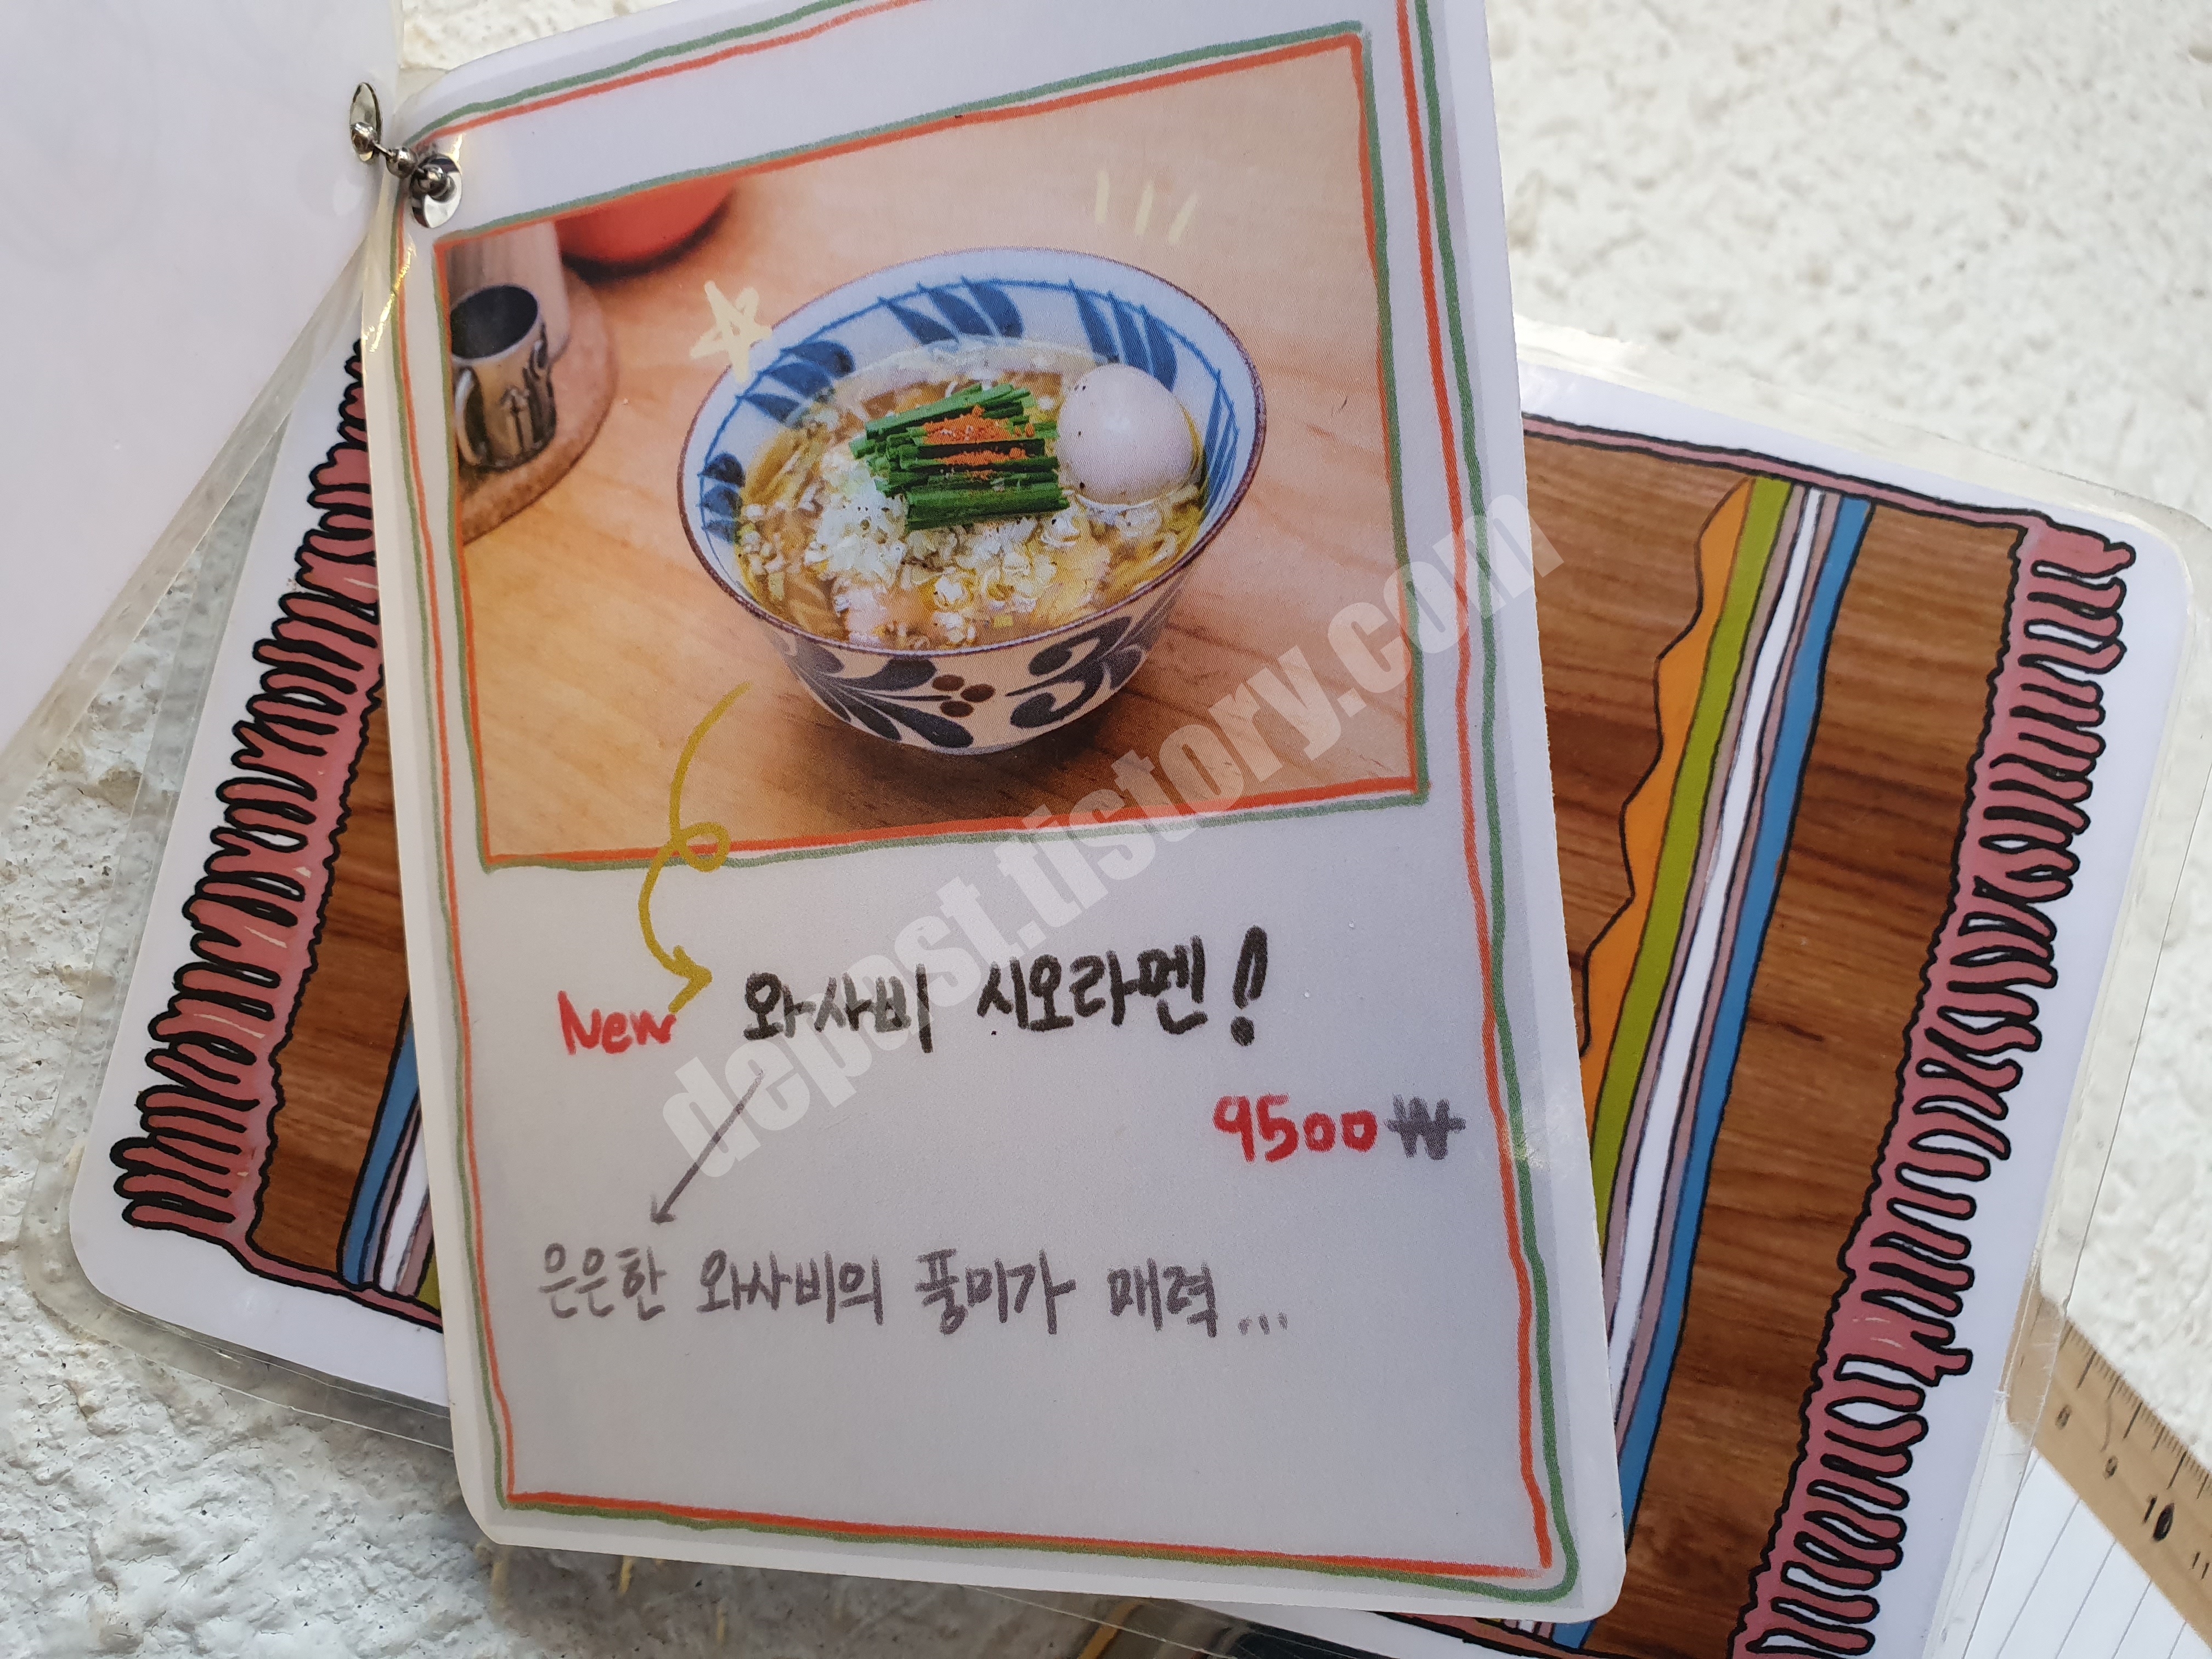 New 와사비 시오라멘!
9500₩
은은한 와사비의 풍미가 매력...
depost.tistory.com
8
9
10
11